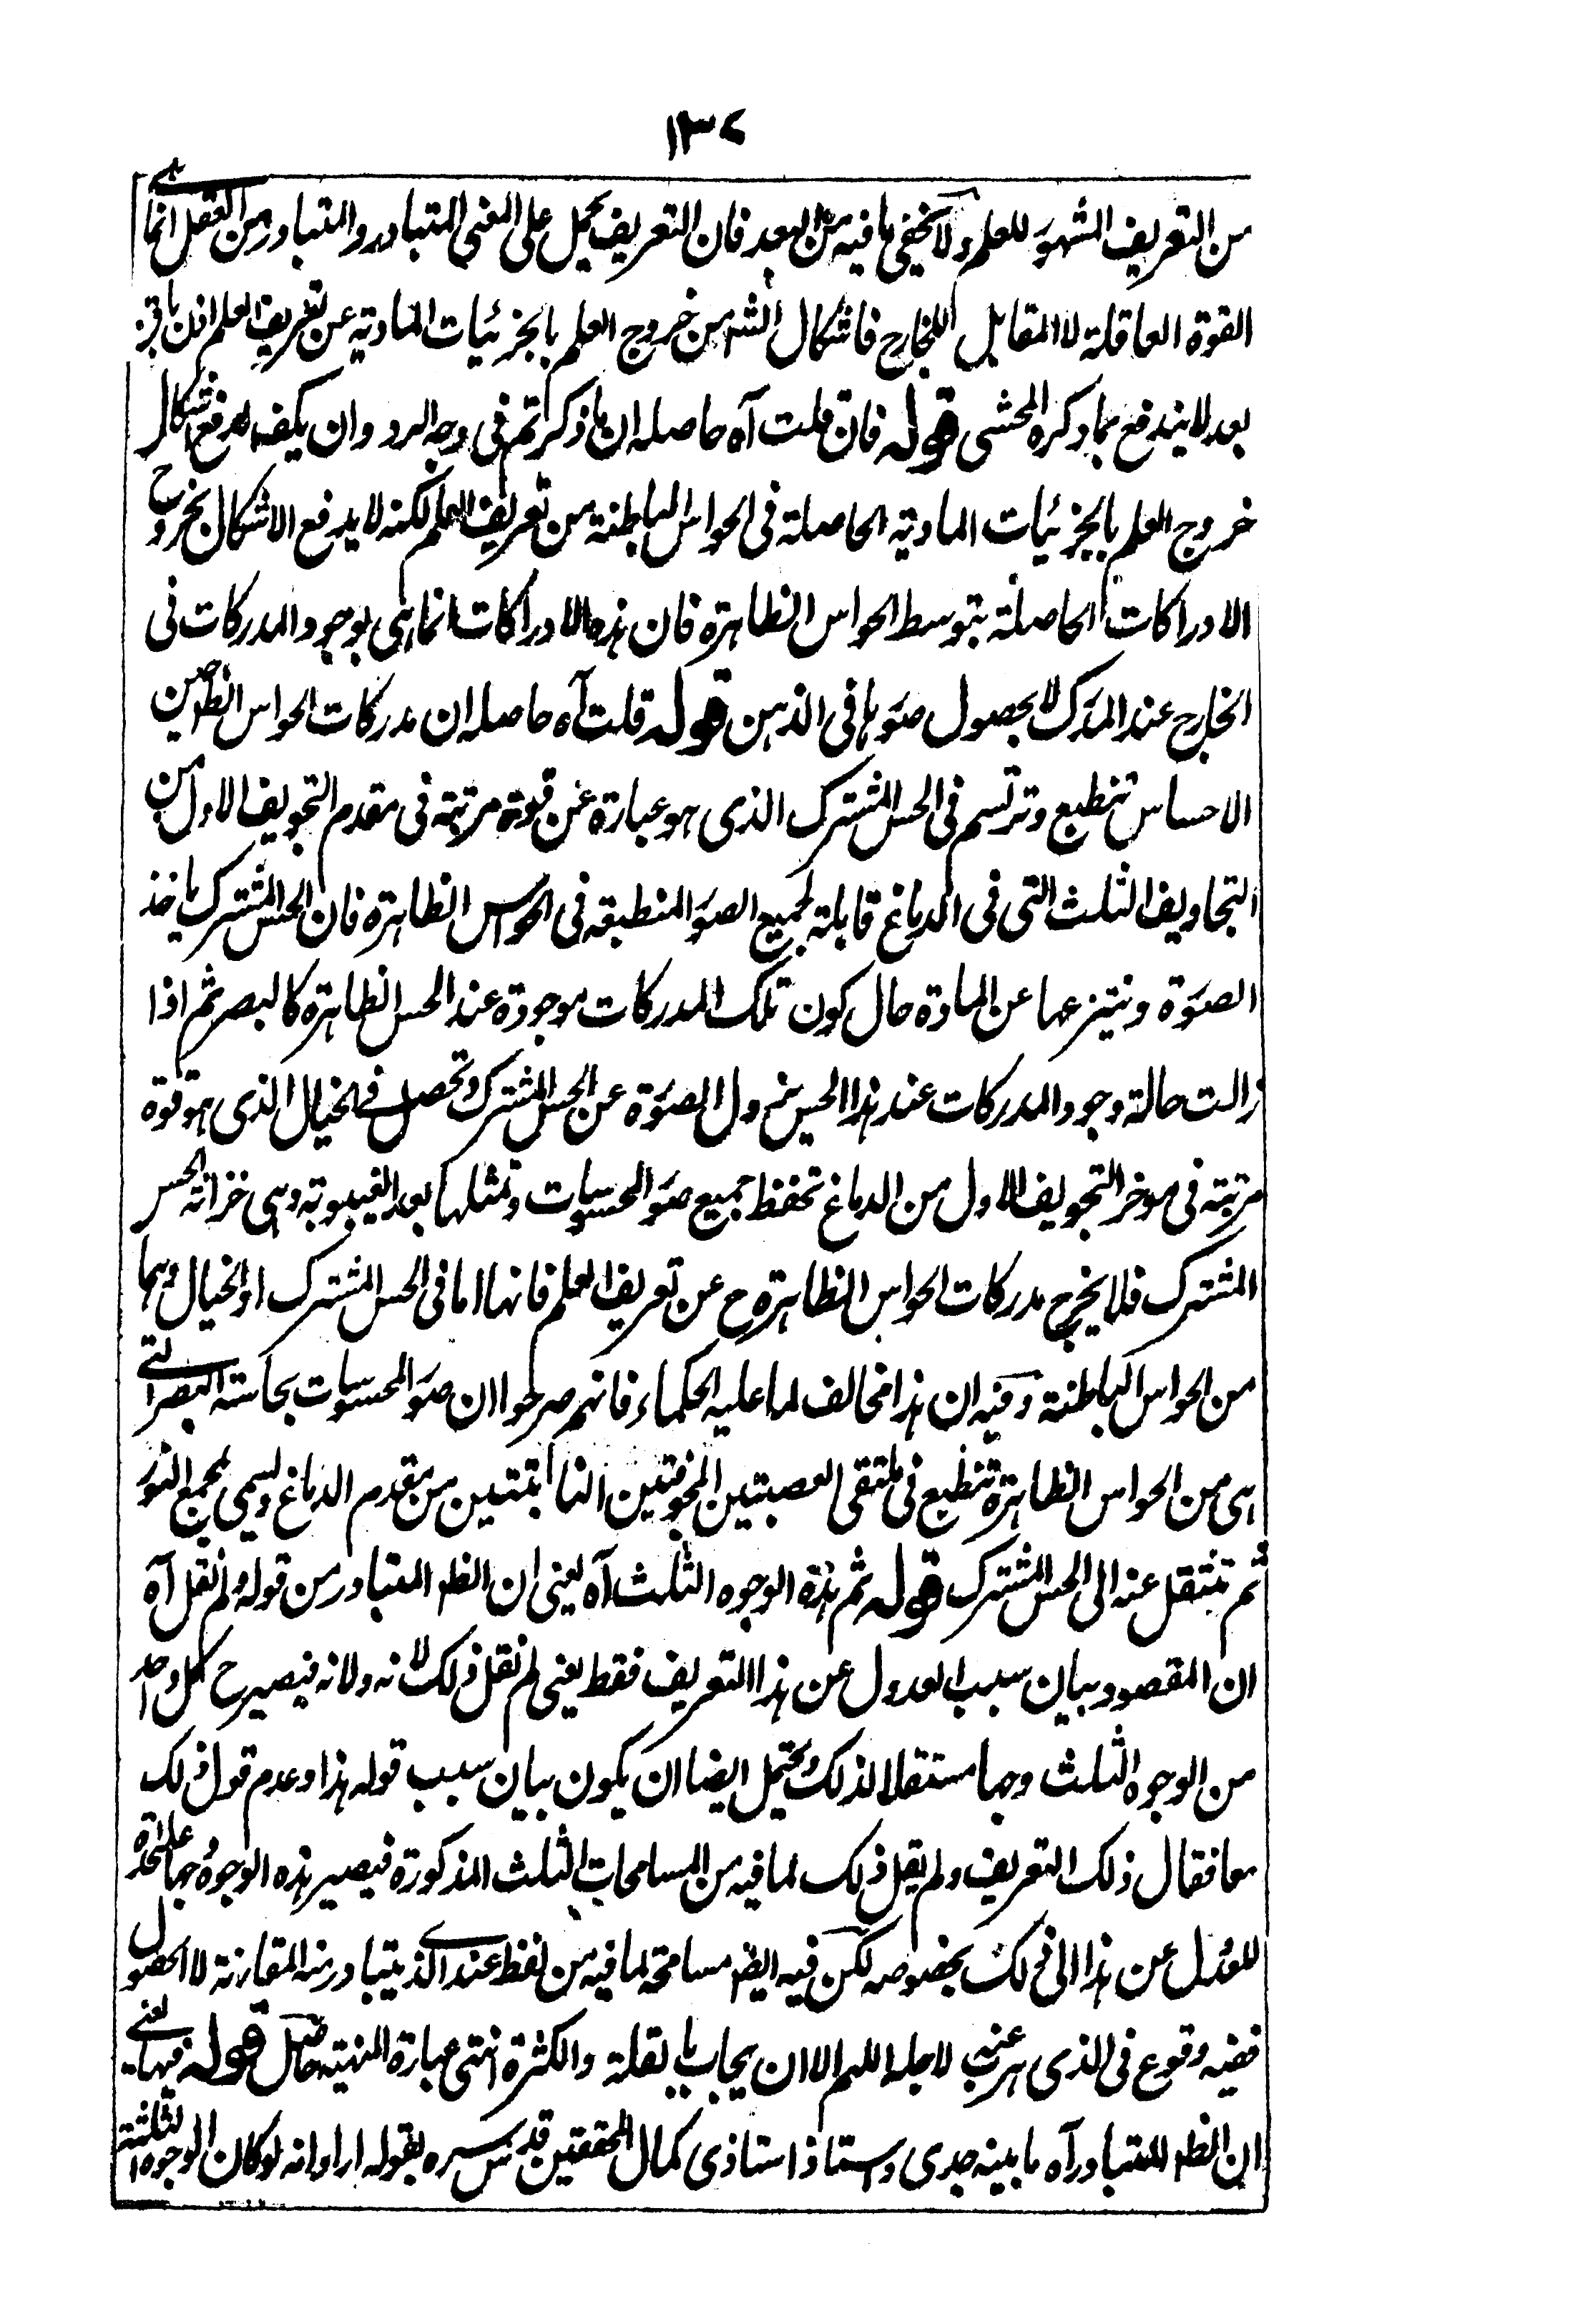 ١٣٤
من التعريف المشهور للعلم ولا يخفى ما فيه من البعد فان التعريف يحمل على المعنى المتبادر والمتبادر من العقل انما هى
القوة العاقلة لا المقابل للخارج فاشكال الشه من خروج العلم بالجزئيات المادية عن تعريف العلم اذن باق
بعد لا يندفع بما ذكره المحشى قوله فان قلت آه حاصله ان ما ذكرتم فى وجه الرد وان يكف لدفع اشكال
خروج العلم بالجزئيات المادية الحاصلة فى الحواس الباطنة من تعريف العلم لكنه لا يدفع الاشكال بخروج
الادراكات الحاصلة بتوسط الحواس الظاهرة فان هذه الادراكات انما هى بوجود المدركات فى
الخارج عند المدرك لا بحصول صورها فى الذهن قوله قلت آه حاصله ان مدركات الحواس الظاهرة حين
الاحساس تنطبع وترتسم فى الحس المشترك الذى هو عبارة عن قوة مرتبة فى مقدم التجويف الاول من
التجاويف الثلث التى فى الدماغ قابلة لجميع الصور المنطبقه فى الحواس الظاهرة فان الحس المشترك ياخذ
الصورة وينتزعها عن المادة حال كون تلك المدركات موجودة عند الحس الظاهرة كالبصر ثم اذا
زالت حالة وجود المدركات عند هذا الحس يزول الصورة عن الحس المشترك وتحصل فى الخيال الذى هو قوة
مرتبة فى موخر التجويف الاول من الدماغ تحفظ جميع صور المحسوسات وتمثلها بعد الغيبوبة وهى خزانة الحس
المشترك فلا يخرج مدركات الحواس الظاهرة ح عن تعريف العلم فانها اما فى الحس المشترك او الخيال وهما
من الحواس الباطنة وفيه ان هذا مخالف لما عليه الحكماء فانهم صرحوا ان صور المحسوسات بحاسة البصر التى
هى من الحواس الظاهرة تنطبع فى ملتقى العصبتين المجوفتين النابتتين من مقدم الدماغ ويسمى بمجمع النور
ثم تنتقل عنه الى الحس المشترك قوله ثم هذه الوجوه الثلث آه يعنى ان الظ المتبادر من قوله ولم نقل آه
ان المقصود بيان سبب العدول عن هذا التعريف فقط يعنى لم نقل ذلك لانه ولانه فيصير ح كل واحد
من الوجوه الثلث وجها مستقلا لذلك ويحتمل ايضا ان يكون بيان سبب قوله هذا وعدم قول ذلك
معا فقال ذلك التعريف ولم يقل ذلك لما فيه من المسامحات الثلث المذكورة فيصير هذه الوجوه وجها علىحدة
للعدول عن هذا الى ذلك بخصوصه لكن فيه ايضا مسامحة لما فيه من لفظ عند الذى يتبادر منه المقارنة لا الحصول
ففيه وقوع فى الذى هرب عنه لاجله اللهم الا ان يجاب بالقلة والكثرة انتهى عبارة المنهية حاصل قوله فيها يعنى
ان الظ المتبادر آه ما بينه جدى واستاذ استاذى كمال المحققين قدس سره بقوله اراد انه لو كان الوجوه الثلثة